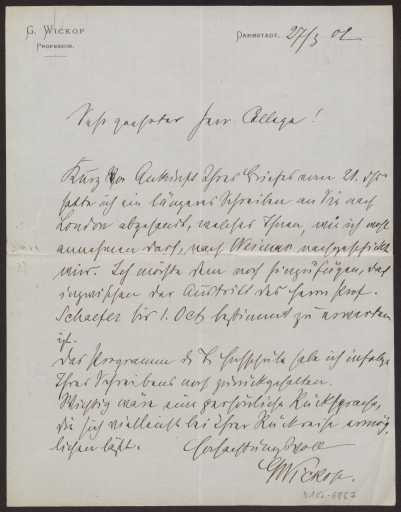 G. WICKOP
PROFESSOR.
DARMSTADT, 27/3 01
Sehr geehrter Herr College!
Kurz vor Ankunft Ihres Briefes vom 21. ds
hatte ich ein längeres Schreiben an Sie nach
London abgesandt, welches Ihnen, wie ich wohl
annehmen darf, nach Weimar nachgeschickt
wird. Ich möchte dem noch hinzufügen, daß
inzwischen der Austritt des Herrn Prof.
Schaefer bis 1. Oct. bestimmt zu erwarten
ist.
Das Programm d. Hochschule habe ich infolge
Ihres Schreibens noch zurückgehalten.
Wichtig wäre eine persönliche Rücksprache,
die sich vielleicht bei Ihrer Rückreise ermög-
lichen läßt. Hochachtungsvoll
GWickop.